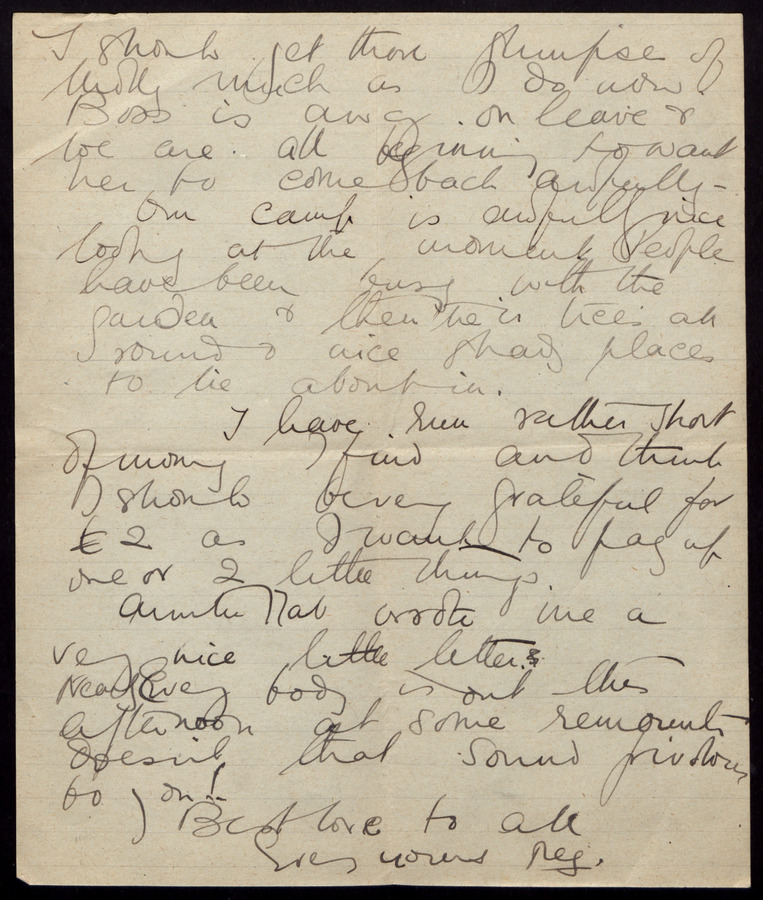 I should get than glimpse of
Molly much as I do now.
Boss is away on leave &
we are all beginning to want
her to come back awfully –
Our camp is awfully nice
looking at the moment People
have been busy with the
garden & then the trees all
round & nice shady places
to lie about in.
I have run rather short
of money I find and think
I should be very grateful for
£2 as I want to pay up
one or 2 little things.
Auntie Nab wrote me a
very nice little letter.
Nearly Every body is out this
afternoon at some remounts
doesn't that sound frivolous
to you!
Best love to all
Ever yours Peg.